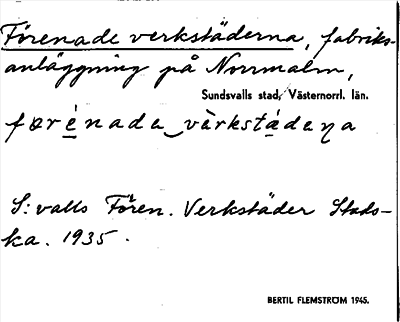 Förenade verkstäderna, fabriks-
anläggning på Norrmalm,
Sundsvalls stad, Västernorrl. län.
førénada‿vèrkstádeɳa
S:valls Fören. Verkstäder Stads-
ka. 1935.
BERTIL FLEMSTRÖM 1945.